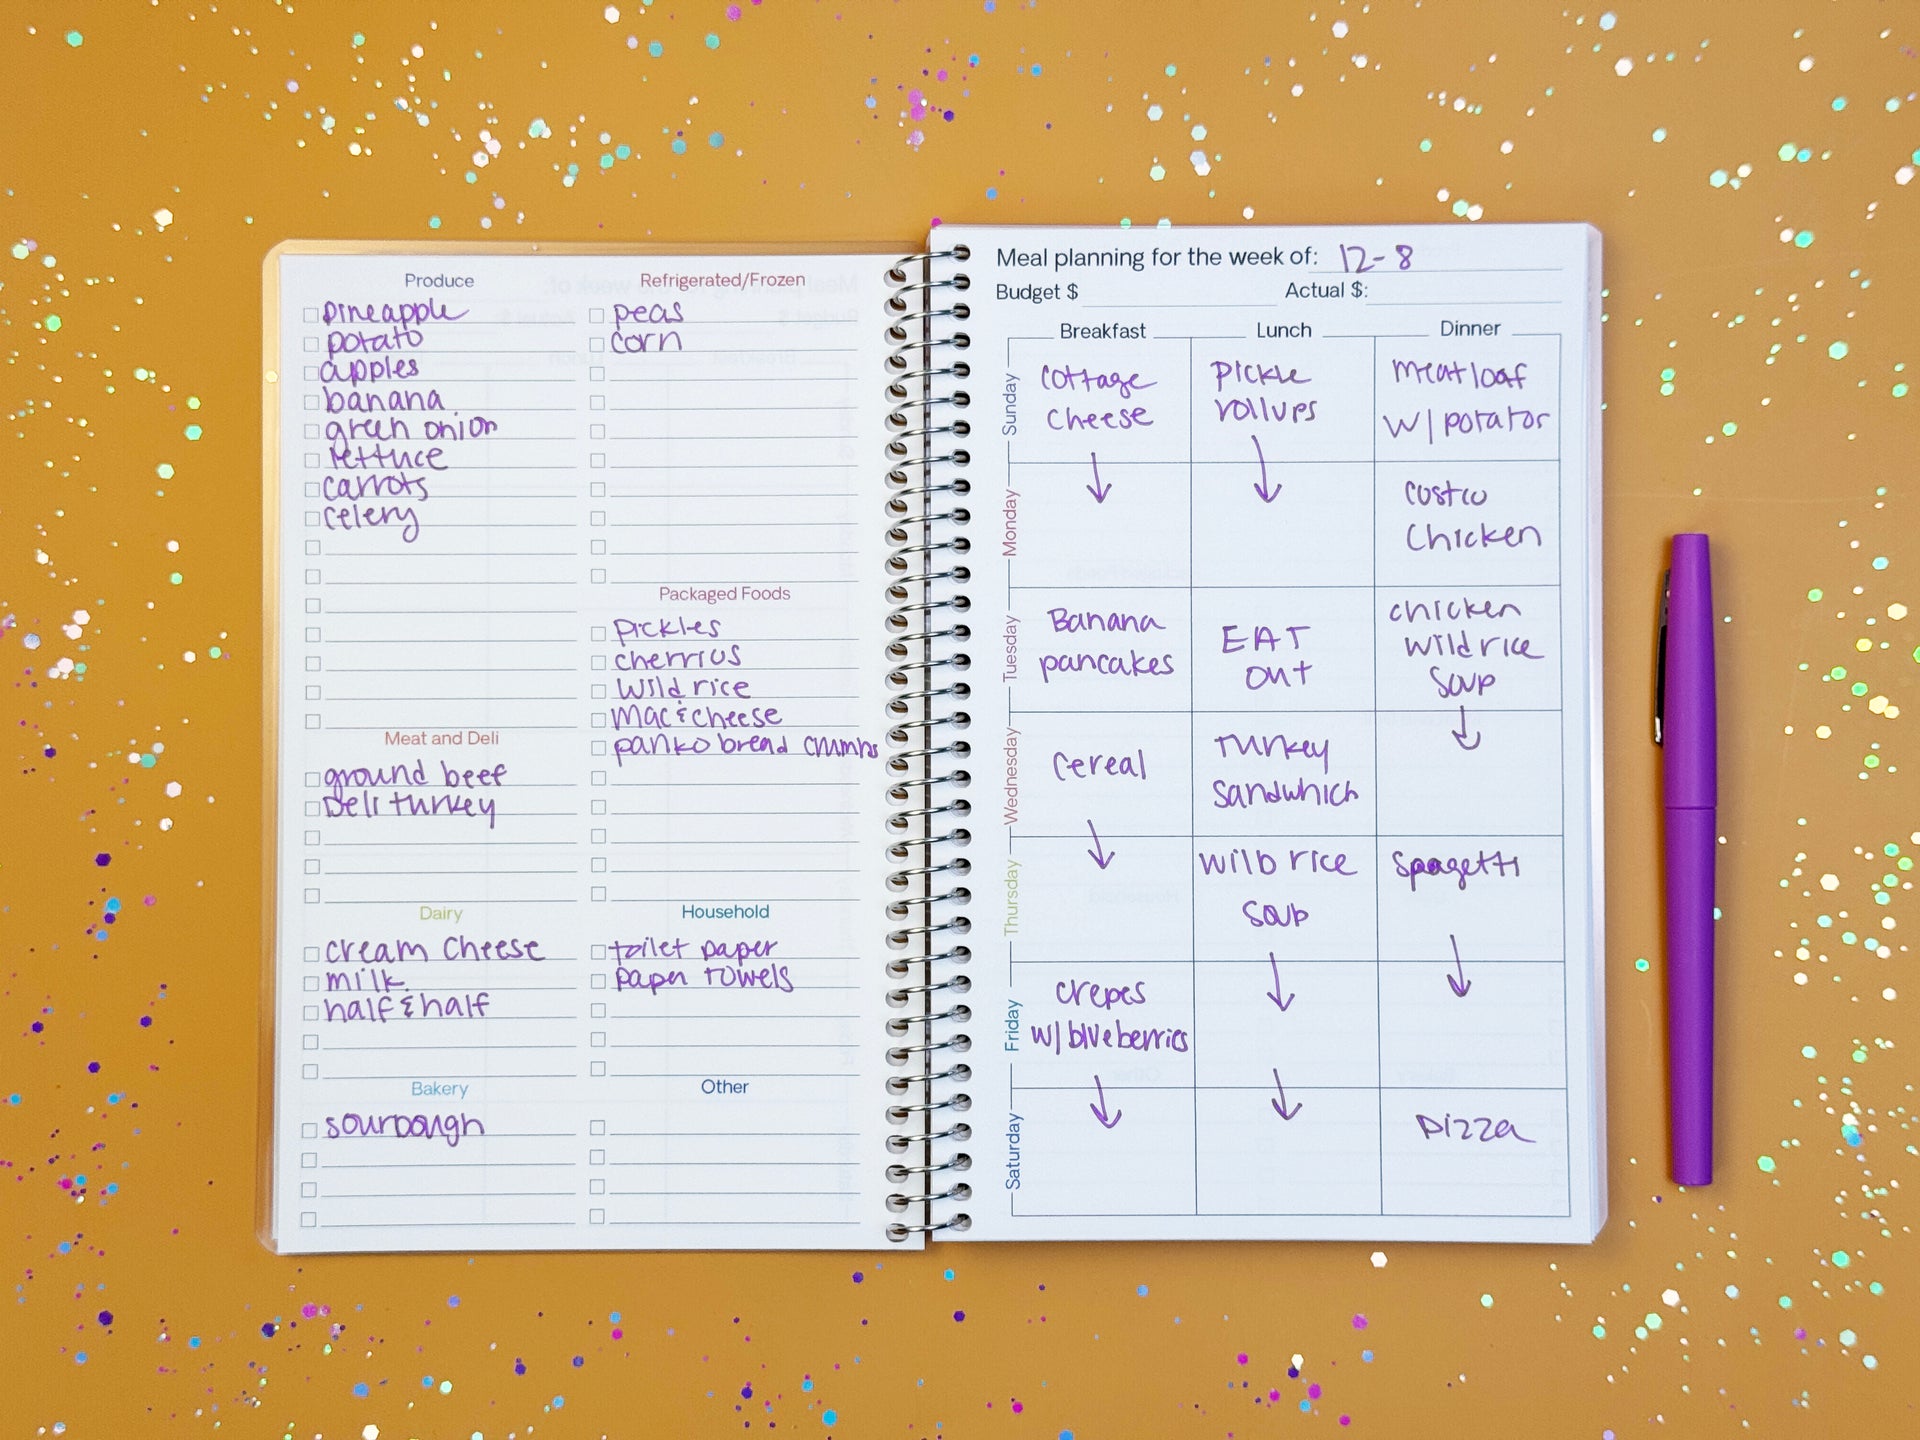 Produce
pineapple
potato
apples
banana
green onion
lettuce
carrots
celery
Meat and Deli
ground beef
Deli turkey
Dairy
cream cheese
milk
half & half
Bakery
sourdough
Refrigerated/Frozen
peas
corn
Packaged Foods
pickles
cherrios
wild rice
mac & cheese
panko bread crumbs
Household
toilet paper
paper towels
Other
Meal planning for the week of: 12-8
Budget $ Actual $:
Breakfast Lunch Dinner
Sunday
cottage
cheese
pickle
rollups
meatloaf
w/ potator
Monday
costco
chicken
Tuesday
Banana
pancakes
EAT
out
chicken
wild rice
soup
Wednesday
cereal
turkey
sandwhich
Thursday
wild rice
soup
spagetti
Friday
crepes
w/ blueberries
Saturday
pizza